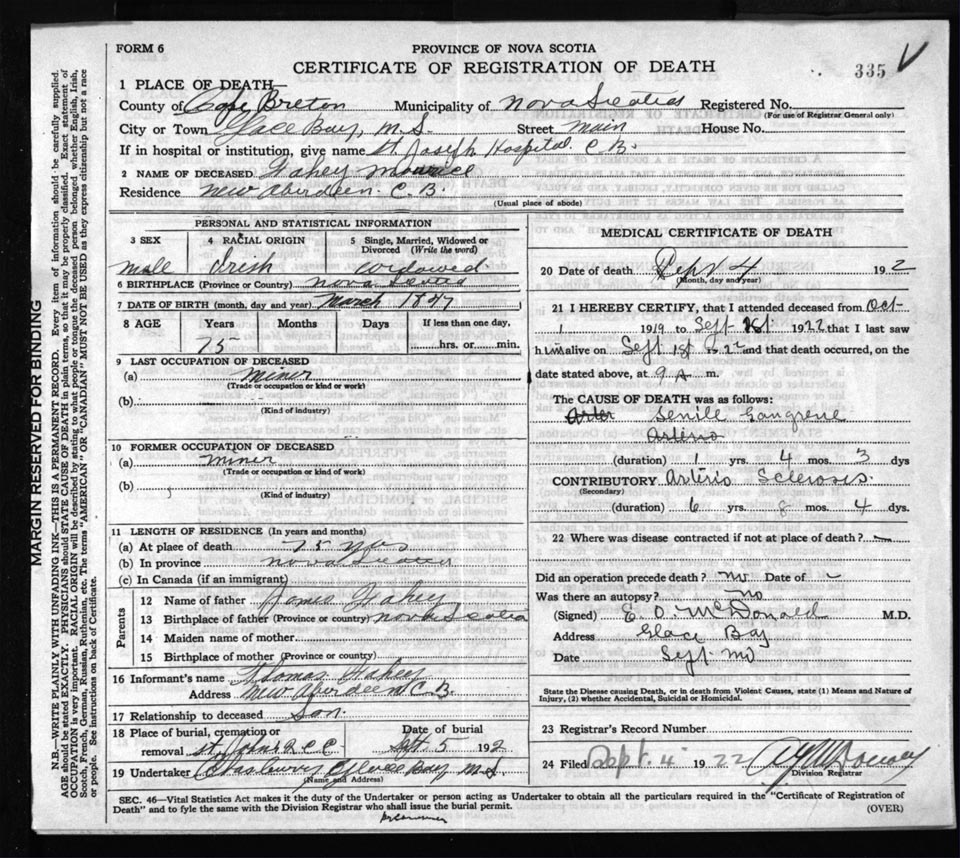 FORM 6
PROVINCE OF NOVA SCOTIA
CERTIFICATE OF REGISTRATION OF DEATH
335
1 PLACE OF DEATH
County of Cape Breton Municipality of Nova Scotia Registered No.
(For use of Registrar General only)
City or Town Glace Bay, N.S. Street Main House No.
If in hospital or institution, give name St. Joseph Hospital. C.B.
2 NAME OF DECEASED. Fahey Maurice
Residence New Aberdeen. C.B.
(Usual place of abode)
PERSONAL AND STATISTICAL INFORMATION
3 SEX
4 RACIAL ORIGIN
5 Single, Married, Widowed or Divorced (Write the word)
male Irish widowed.
6 BIRTHPLACE (Province or Country) Nova Scotia
7 DATE OF BIRTH (month, day and year) March 1847
8 AGE Years Months Days If less than one day,
75 hrs. or min.
9 LAST OCCUPATION OF DECEASED
(a) Miner
(Trade or occupation or kind of work)
(b)
(Kind of industry)
10 FORMER OCCUPATION OF DECEASED
(a) Miner
(Trade or occupation or kind of work)
(b)
(Kind of industry)
11 LENGTH OF RESIDENCE (In years and months)
(a) At place of death 75 yrs
(b) In province Nova Scotia
(c) In Canada (if an immigrant)
Parents
12 Name of father James Fahey
13 Birthplace of father (Province or country) Nova Scotia
14 Maiden name of mother
15 Birthplace of mother (Province or country)
16 Informant's name Thomas Fahey
Address New Aberdeen C.B.
17 Relationship to deceased Son.
18 Place of burial, cremation or removal St. Johns R.C.C Date of burial Sept. 5 192
19 Undertaker Glace Bay N.S.
(Name and Address)
MEDICAL CERTIFICATE OF DEATH
20 Date of death Sept 4 192
(Month, day and year)
21 I HEREBY CERTIFY, that I attended deceased from Oct-
1 1919 to Sept 1st. 1922 that I last saw
him alive on Sept 1st 1922 and that death occurred, on the
date stated above, at 9 A m.
The CAUSE OF DEATH was as follows:
Arter Senile Gangrene
Arterio
(duration) 1 yrs. 4 mos. 3 dys
CONTRIBUTORY Arterio Sclerosis.
(Secondary)
(duration) 6 yrs. 8 mos. 4 dys.
22 Where was disease contracted if not at place of death?
Did an operation precede death? No Date of -
Was there an autopsy? No
(Signed) E. O. McDonald M.D.
Address Glace Bay
Date Sept.
State the Disease causing Death, or in death from Violent Causes, state (1) Means and Nature of
Injury, (2) whether Accidental, Suicidal or Homicidal.
23 Registrar's Record Number
24 Filed Sept. 4 1922
Division Registrar
SEC. 46—Vital Statistics Act makes it the duty of the Undertaker or person acting as Undertaker to obtain all the particulars required in the "Certificate of Registration of
Death" and to fyle the same with the Division Registrar who shall issue the burial permit. (OVER)
MARGIN RESERVED FOR BINDING
N.B.—WRITE PLAINLY WITH UNFADING INK—THIS IS A PERMANENT RECORD. Every item of information should be carefully supplied.
AGE should be stated EXACTLY. PHYSICIANS should STATE CAUSE OF DEATH in plain terms, so that it may be properly classified. Exact statement of
OCCUPATION is very important. RACIAL ORIGIN will be described by stating to what people or tongue the deceased person belonged whether English, Irish,
Scotch, French, German, Russian, Ruthenian, etc. The terms "AMERICAN" OR "CANADIAN" MUST NOT BE USED as they express citizenship but not a race
or people. See instructions on back of Certificate.